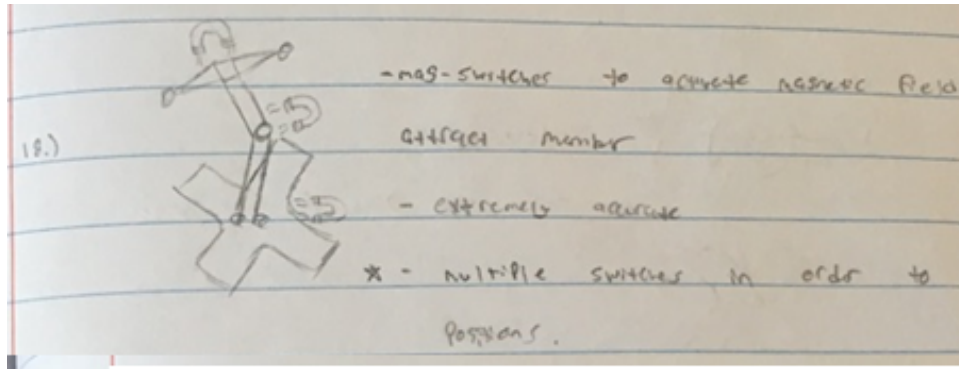 18.)
-mag-switches to activate magnetic field
attract member
- extremely accurate
* - multiple switches in order to
positions.